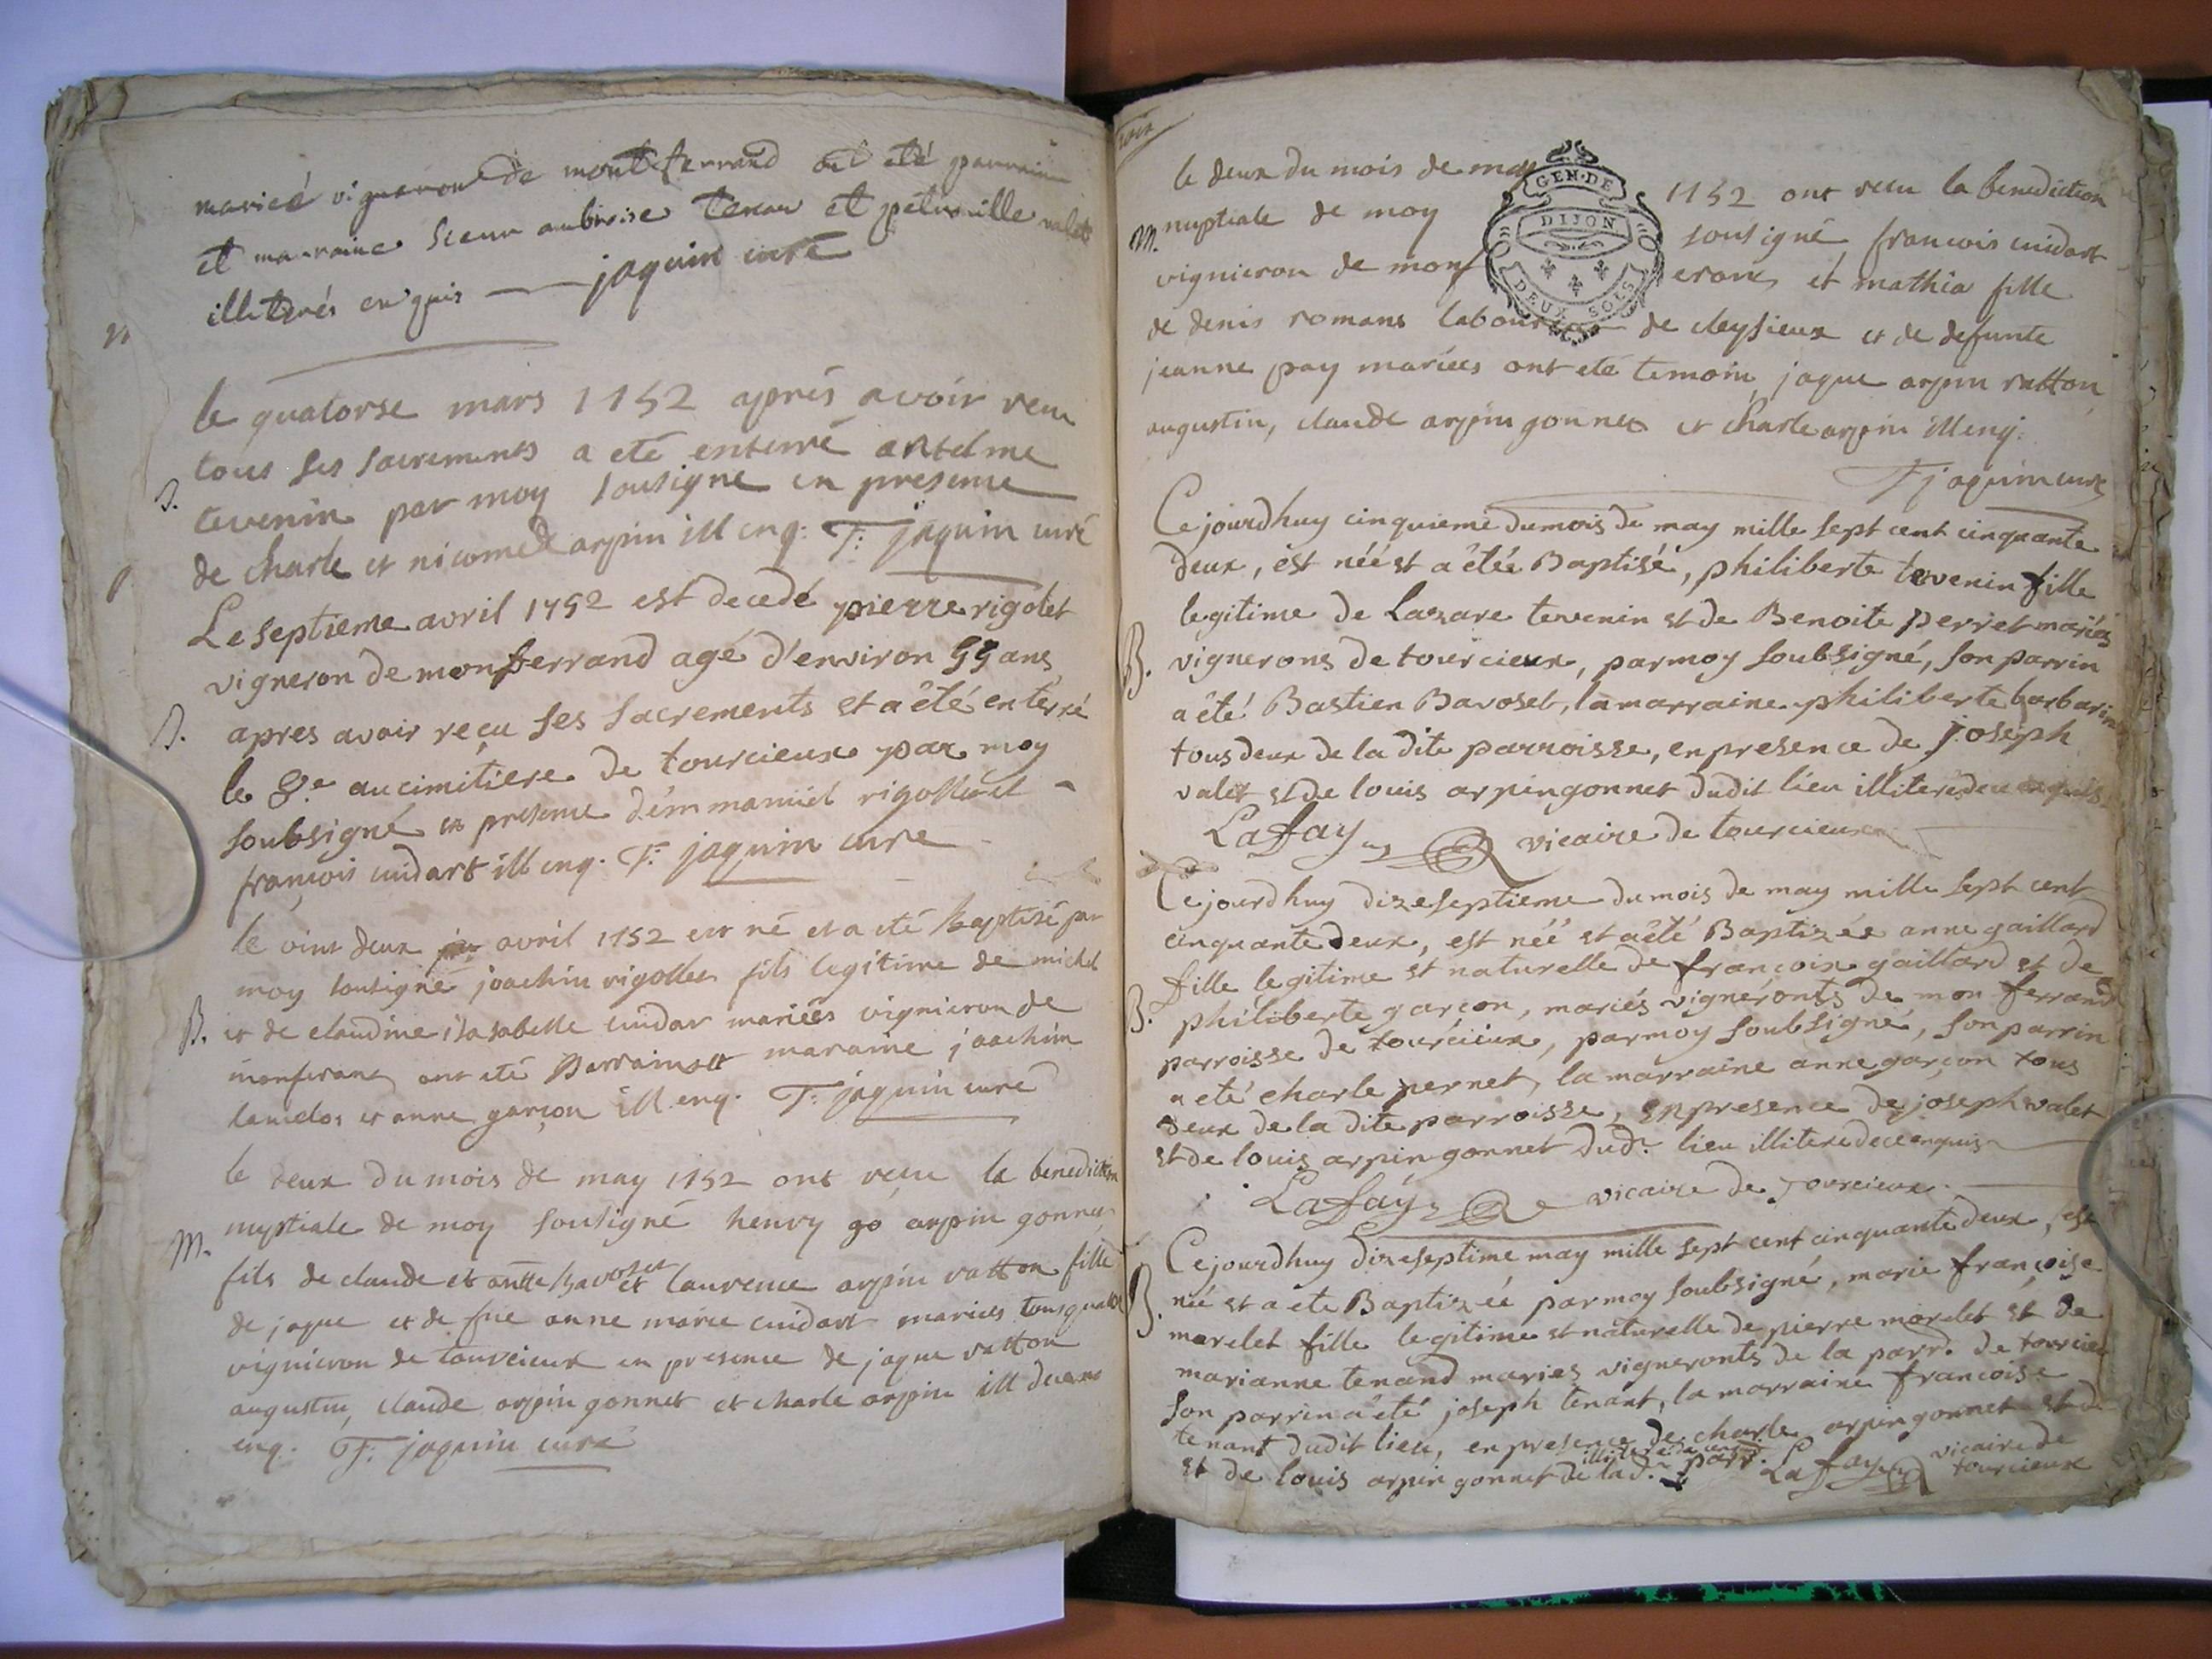 mariéé vigneron de montferrand ont été parrain
et marraine sieur ambroise tenan et petronille valet
illiterés enquis jaquin curé
le quatorse mars 1752 aprés avoir recu
tous ses sacrements a eté enterré antelme
S. tevenin par moy sousigné en presence
de charle et nicomede arpin ill enq: F: jaquin curé
Le septieme avril 1752 est decedé pierre rigolet
vigneron de monferrand agé d'environ 55 ans
S. apres avoir reçu ses sacrements et a êté enterré
le 8.e au cimitiere de tourcieux par moy
soubsigné en presence d'emmanuel rigollet et
francois cuidart ill enq. F: jaquin curé
le vint deux avril 1752 est né et a eté baptisé par
moy sousigné joachim rigollet fils legitime de michel
B. et de claudine isasabelle cuidar mariées vignieron de
monferand ont eté parrain et maraine joachim
et anne garçon ill enq. F: jaquin curé
le deux du mois de may 1752 ont recu la benediction
M. nuptiale de moy sousigné henry go arpin gonnet
fils de claude et antte bavoset et laurence arpin ratton fille
de jaque et de fue anne marie cuidart mariees tous quatre
vignieron de tourcieux en presence de jaque ratton
augustin, claude arpin gonnet et charle arpin ill de ce
enq. F: jaquin curé
le deux du mois de may 1752 ont recu la benediction
GEN. DE
DIJON
DEUX SOLS
M. nuptiale de moy sousigné francois cuidart
vignieron de monferand et mathia fille
de denis romans laboureur de cleysieux et de defunte
jeanne pay mariées ont eté temoin jaque arpin ratton
augustin, claude arpin gonnet et charle arpin ill enq:
F jaquin curé
Ce jourdhuy cinquieme du mois de may mille sept cent cinquante
deux, est néé et a êtéé Baptisé, philiberte tevenin fille
legitime de Lazare tevenin et de Benoite perret mariés
B. vignerons de tourcieux, par moy soubsigné, son parrin
a êté Bastien Bavoset, la marraine philiberte barbarin
tous deux de la dite parroisse, en presence de joseph
valet et de louis arpin gonnet dudit lieu illiterés de ce enquis
Laffay vicaire de tourcieux
Ce jourdhuy dizeseptieme du mois de may mille sept cent
cinquante deux, est néé et a êté Baptizée anne gaillard
fille legitime et naturelle de françoix gaillard et de
B. philiberte garçon, mariés vignéronts de mon ferrand
parroisse de tourcieux, par moy soubsigné, son parrin
a eté charle pernet, la marraine anne garçon tous
deux de la dite parroisse, en presence de joseph valet
et de louis arpin gonnet dud. lieu illitere de ce enquis
Laffay vicaire de tourcieux
Ce jourdhuy dizeseptime may mille sept cent cinquante deux, est
B. néé et a ete Baptizéé par moy soubsigné, marie françoise
marelet fille legitime et naturelle de pierre marelet et de
marianne tenand maries vigneronts de la parr. de tourcieux
son parrin a êté joseph tenant, la marraine francoise
tenant dudit lieu, en presence de charle arpin gonnet et de
et de louis arpin gonnet de la d. parr. illitere de ce enquis Laffay vicaire de
tourcieux